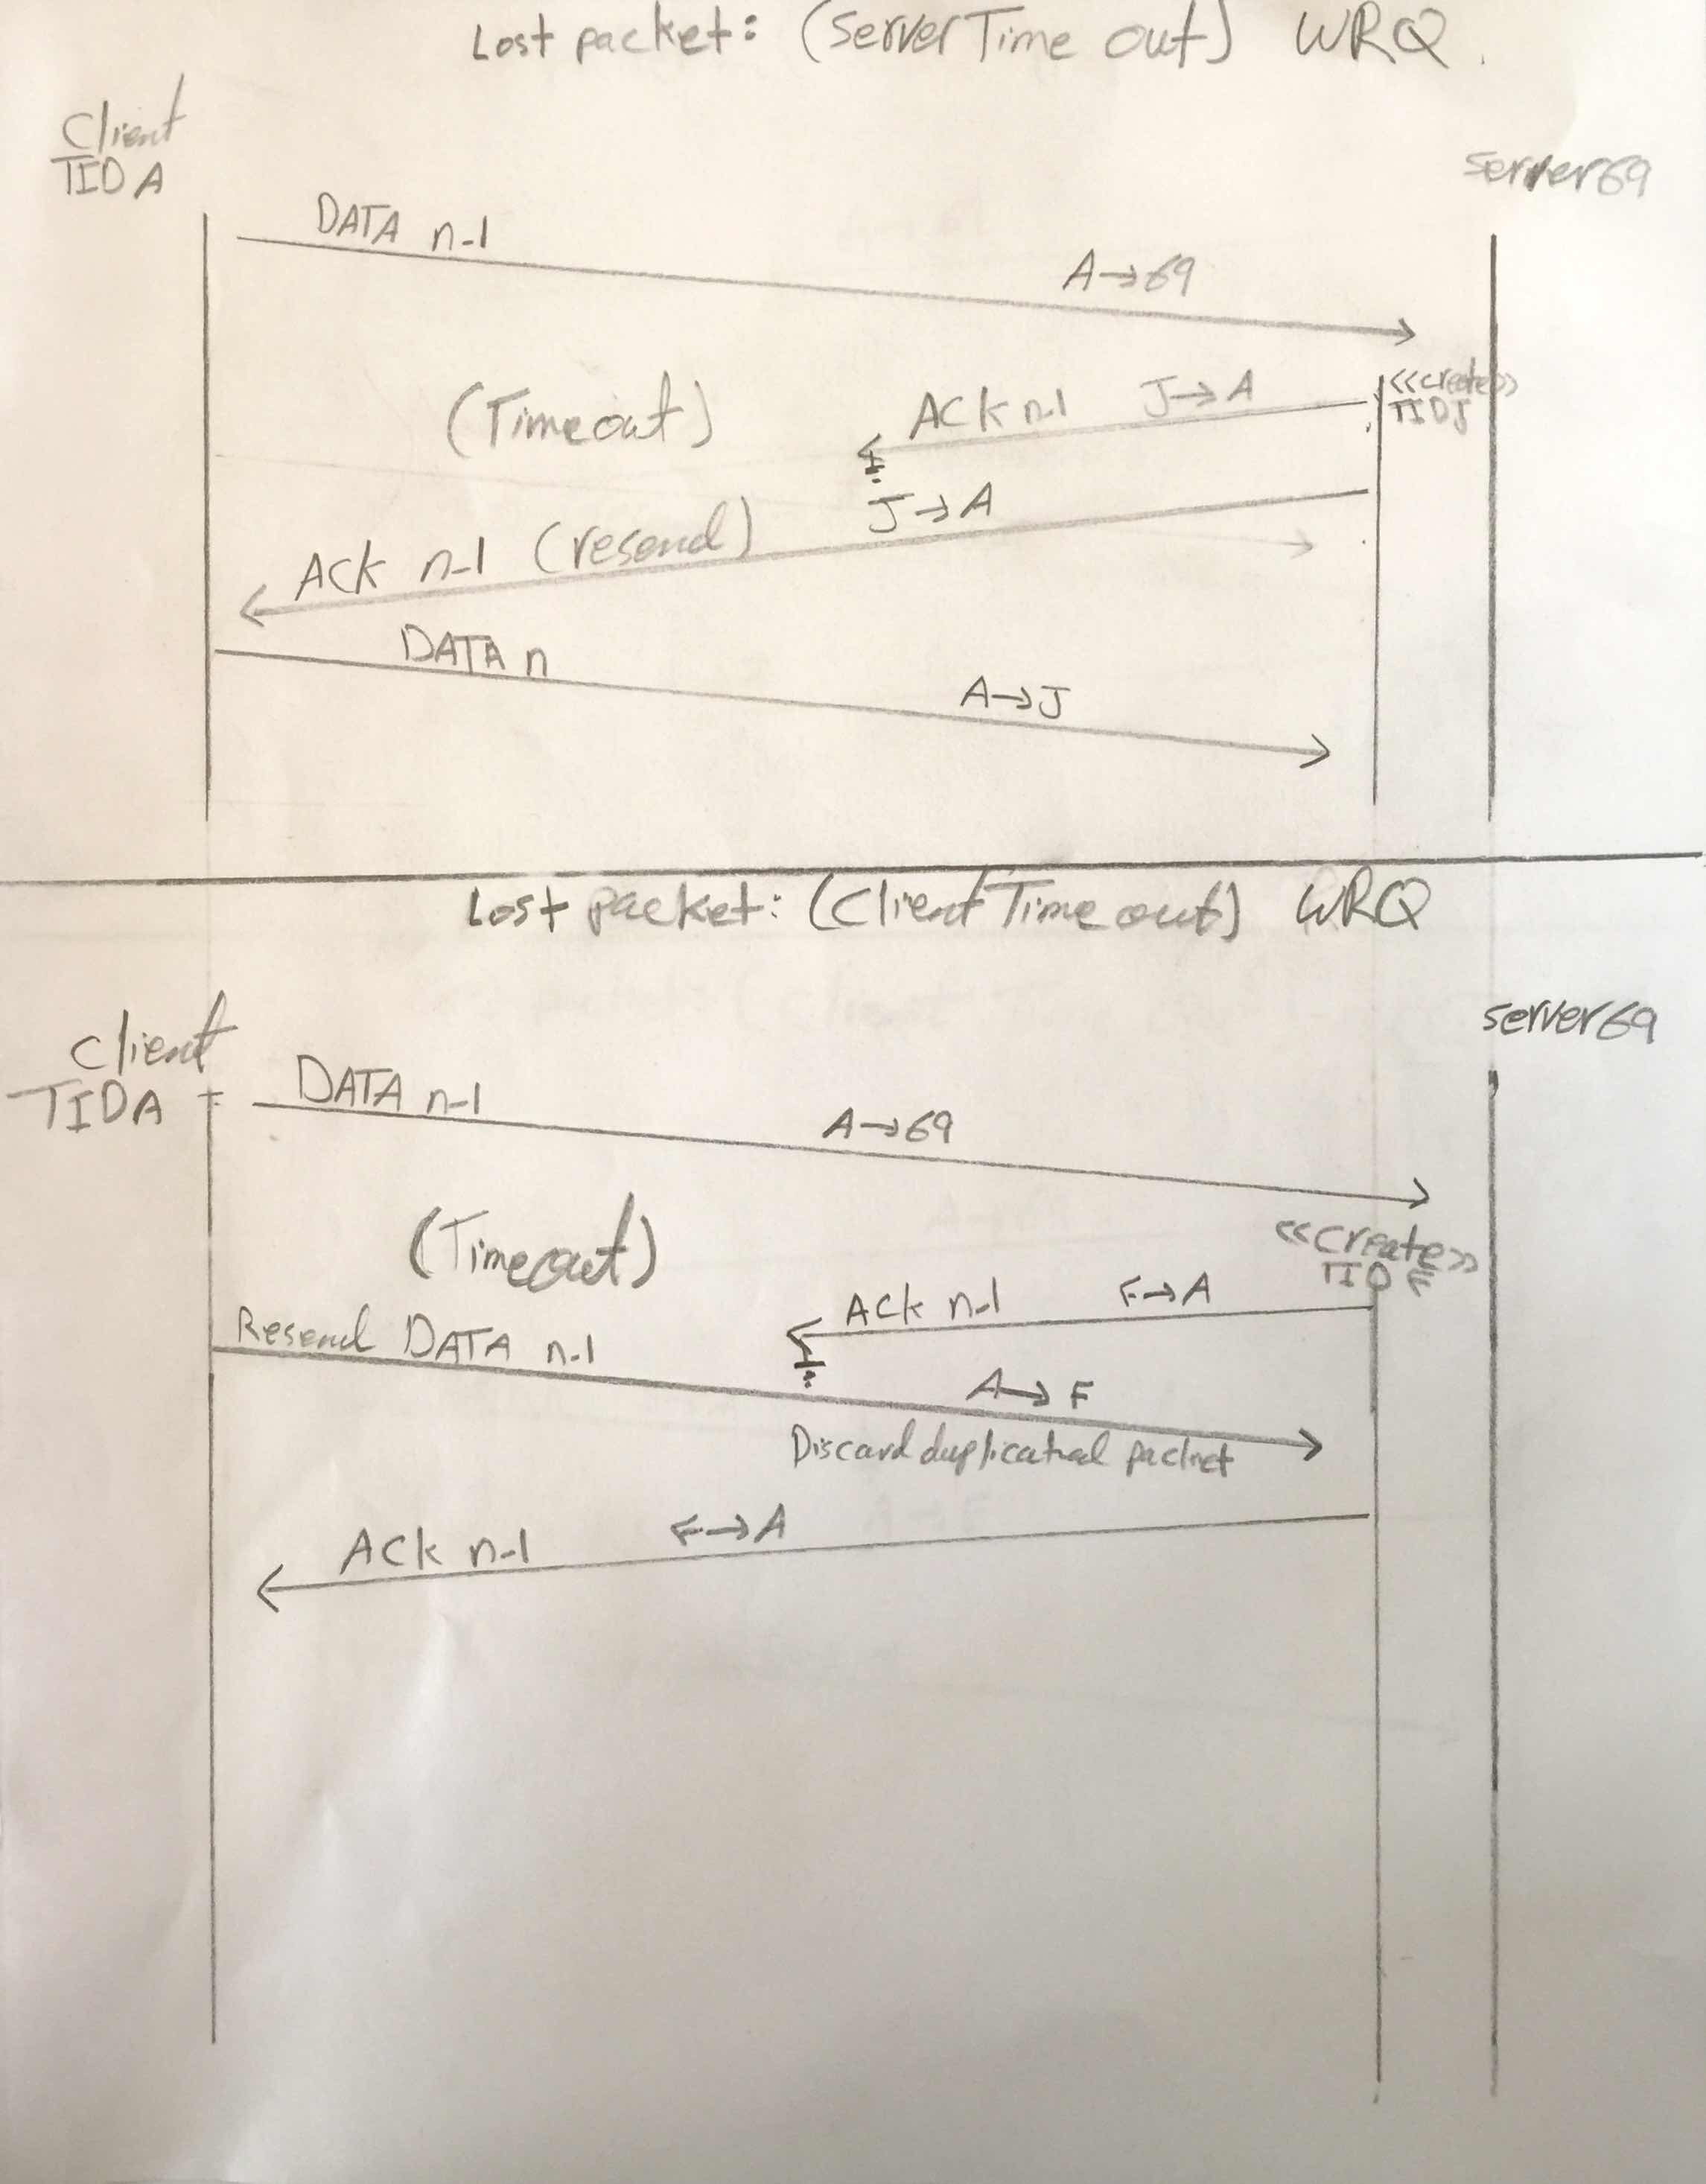 Lost packet: (Server Time out) WRQ.
Client
TID A
server 69
DATA n-1
A→69
<<create>>
TID J
(Timeout)
ACK n-1 J→A
J→A
ACK n-1 (resend)
DATA n
A→J
Lost packet: (Client Time out) WRQ
client
TID A
server 69
DATA n-1
A→69
<<create>>
TID F
(Timeout)
ACK n-1 F→A
Resend DATA n-1
A→F
Discard duplicated packet
ACK n-1 F→A